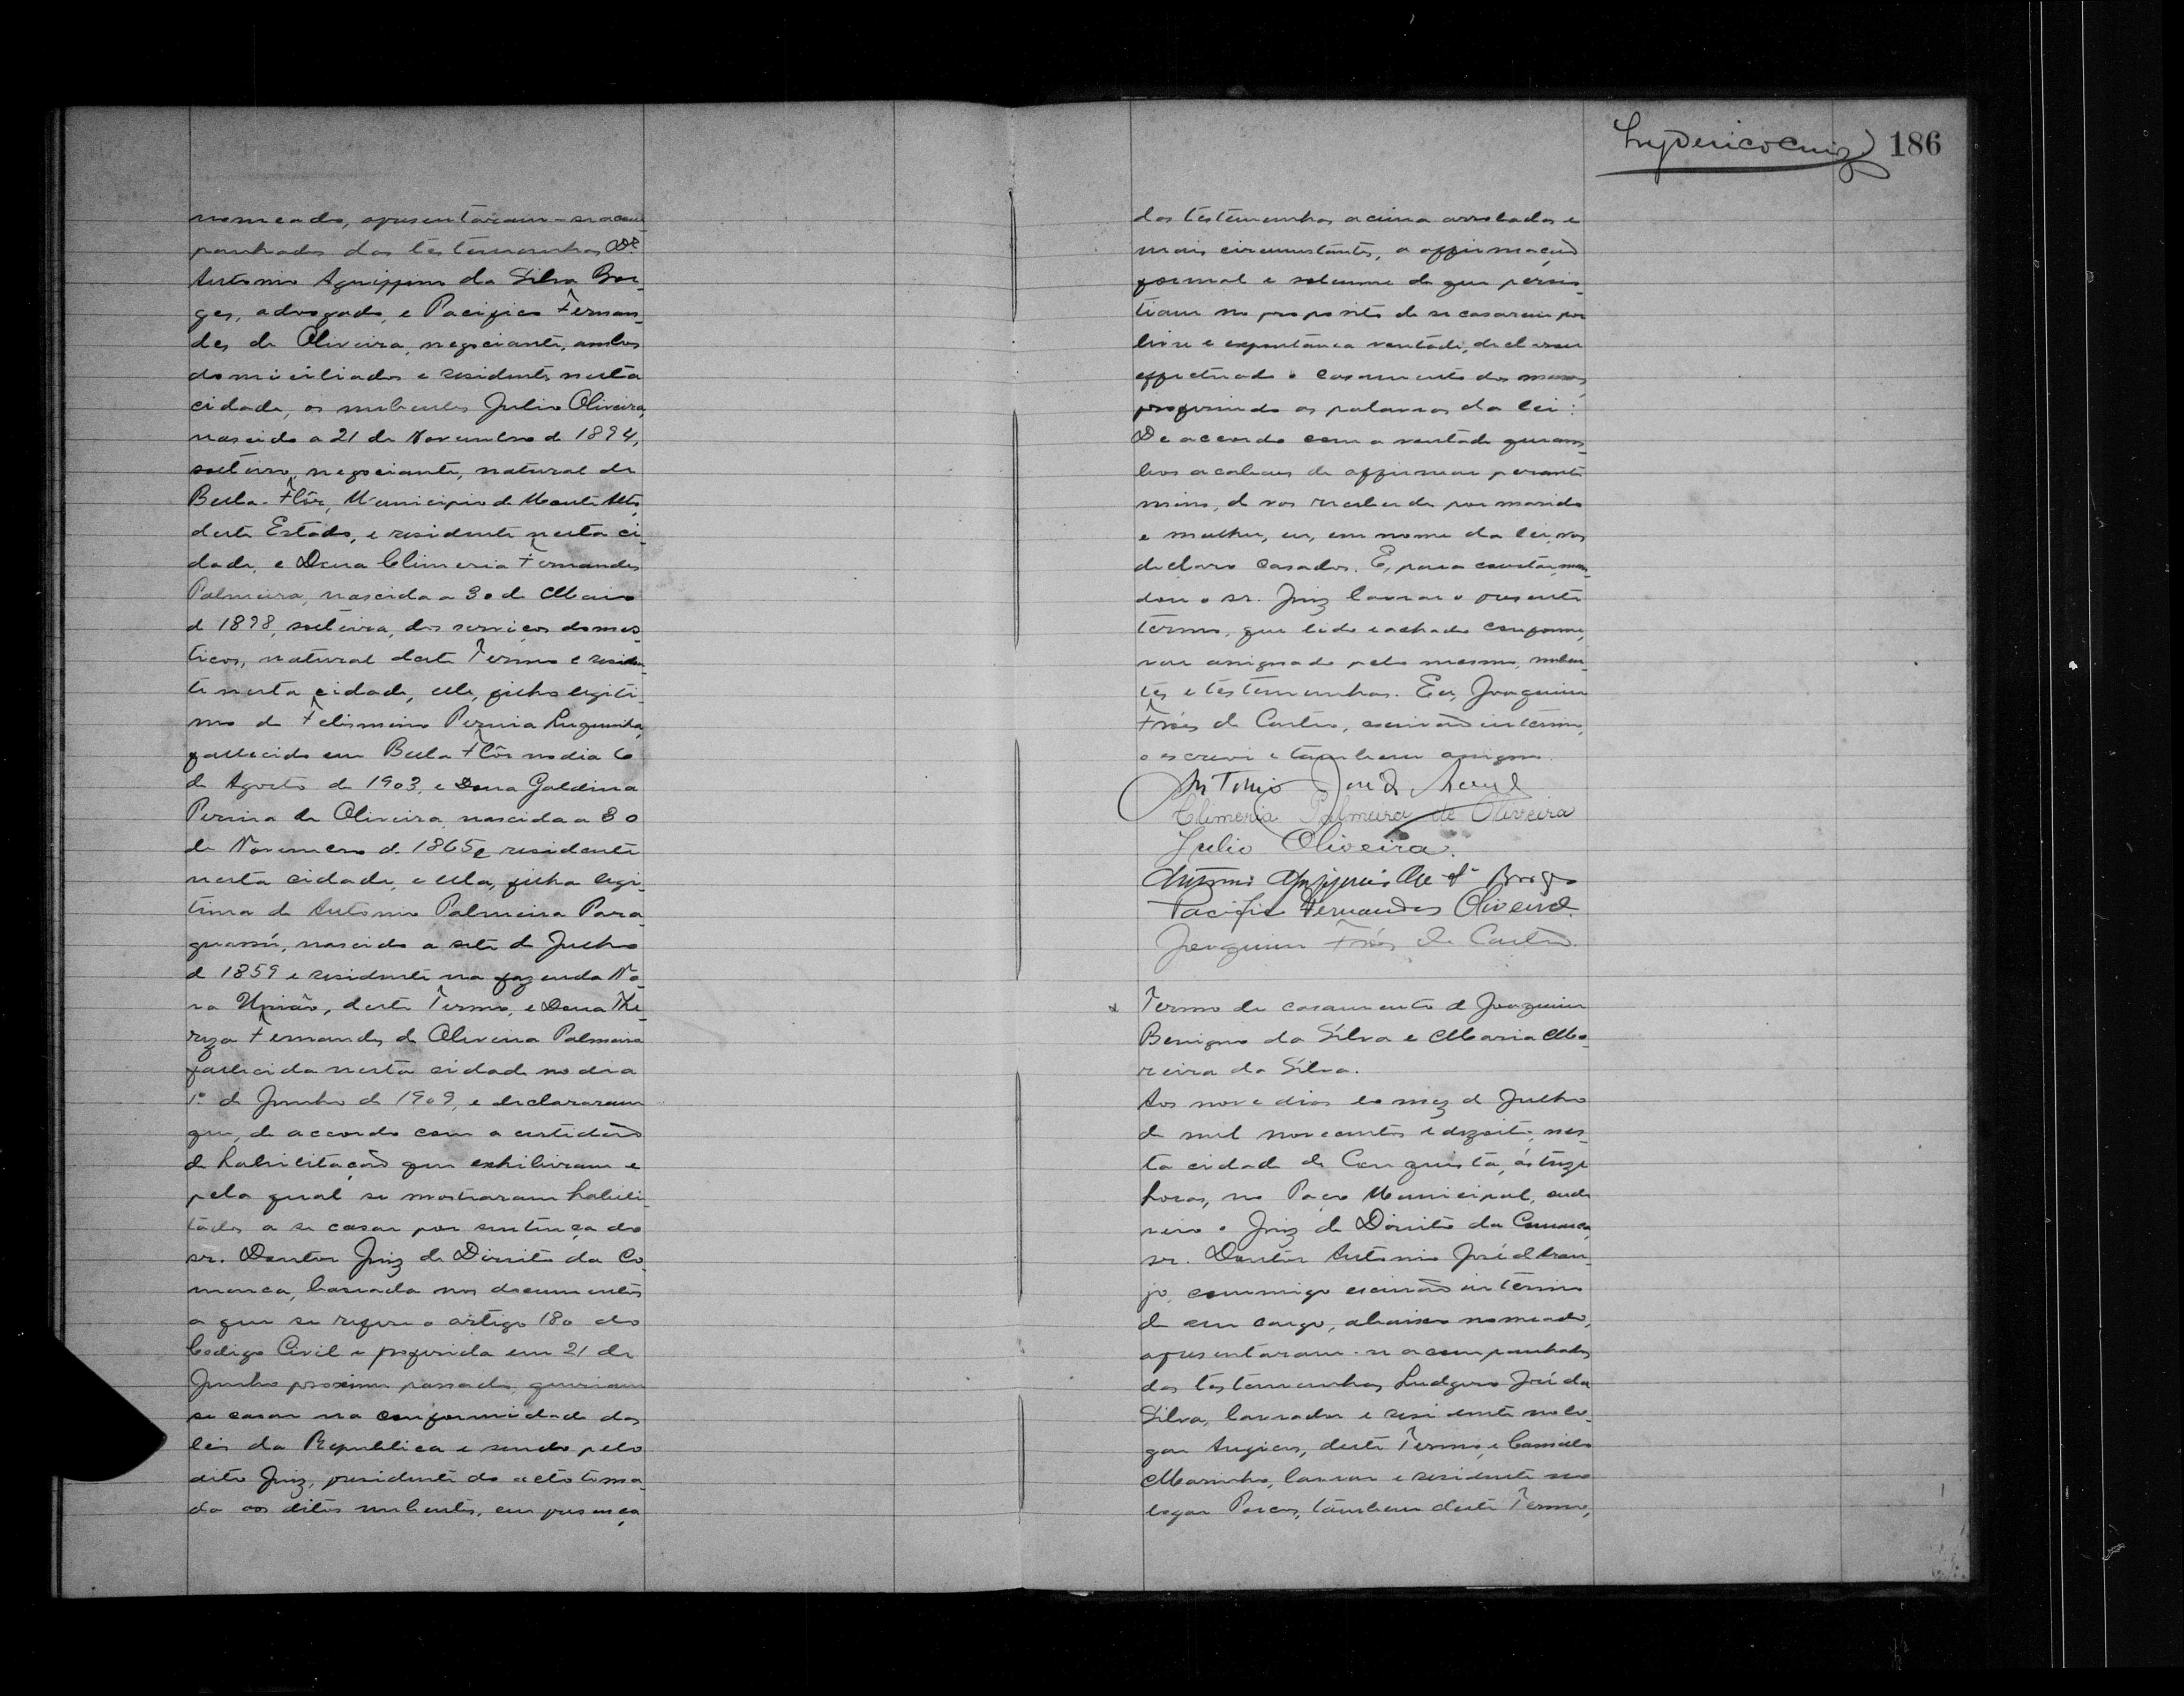 nomeado, apresentaram-se acom
panhados das testemunhas Dr.
Antonio Agrippino da Silva Bor-
ges, advogado, e Pacifico Fernan-
des de Oliveira, negociante, ambos
domiciliados e residentes nesta
cidade, os nubentes Julio Oliveira,
nascido a 21 de Novembro de 1894,
solteiro, negociante, natural de
Bella-Flôr, Municipio de Monte Alto,
deste Estado, e residente nesta ci-
dade, e Dona Climeria Fernandes
Palmeira, nascida a 30 de Maio
de 1898, solteira, dos serviços domes-
ticos, natural deste Termo e residen-
te nesta cidade, elle, filho legiti-
mo de Felismino Pereira
fallecido em Bella Flôr no dia 6
de Agosto de 1903, e Dona Galdina
Pereira de Oliveira, nascida a 30
de Novembro de 1865 e residente
nesta cidade, e ella, filha legi-
tima de Antonio Palmeira Para-
guassú, nascido a sete de Julho
de 1859 e residente na fazenda No-
va União, deste Termo, e Dona The-
reza Fernandes de Oliveira Palmeira
fallecida nesta cidade no dia
1º de Junho de 1909, e declararam
que, de accordo com a certidão
de habilitação que exhibiram e
pela qual se mostraram habili-
tados a se casar por sentença do
sr. Doutor Juiz de Direito da Co-
marca, baseada nos documentos
a que se refere o artigo 180 do
Codigo Civil e proferida em 21 de
Junho proximo passado, queriam
se casar na conformidade das
leis da Republica e sendo pelo
dito Juiz, presidente do acto toma-
da aos ditos nubentes, em presença
186
das testemunhas acima arroladas e
mais circumstantes, a affirmação
formal e solemne de que persis-
tiam no proposito de se casarem por
livre e espontanea vontade, declarou
effectuado o casamento dos mesmos,
proferindo as palavras da lei:
De accordo com a vontade que am-
bos acabaes de affirmar perante
mim, de vos receberdes por marido
e mulher, eu, em nome da lei, vos
declaro casados. E, para constar, man-
dou o sr. Juiz lavrar o presente
termo, que lido e achado conforme,
vae assignado pelo mesmo, nuben-
tes e testemunhas. Eu, Joaquim
Fróes de Castro, escrivão interino,
o escrevi e tambem assigno.
Antonio José de
Climeria Palmeira de Oliveira
Julio Oliveira.
Antonio Borges
Pacifico Fernandes Oliveira.
Joaquim Fróes de Castro.
Termo de casamento de Joaquim
Benigno da Silva e Maria Mo-
reira da Silva.
Aos nove dias do mez de Julho
de mil novecentos e dezoito, nes-
ta cidade de Conquista, ás treze
horas, no Paço Municipal, onde
veio o Juiz de Direito da Comarca,
sr. Doutor Antonio José de Arau-
jo, commigo escrivão interino
de seu cargo, abaixo nomeado,
apresentaram-se acompanhados
das testemunhas Ludgero José da
Silva, lavrador e residente no lo-
gar Angicos, deste Termo, e Camillo
Marinho, lavrar e residente no
logar Porcos, tambem deste Termo,